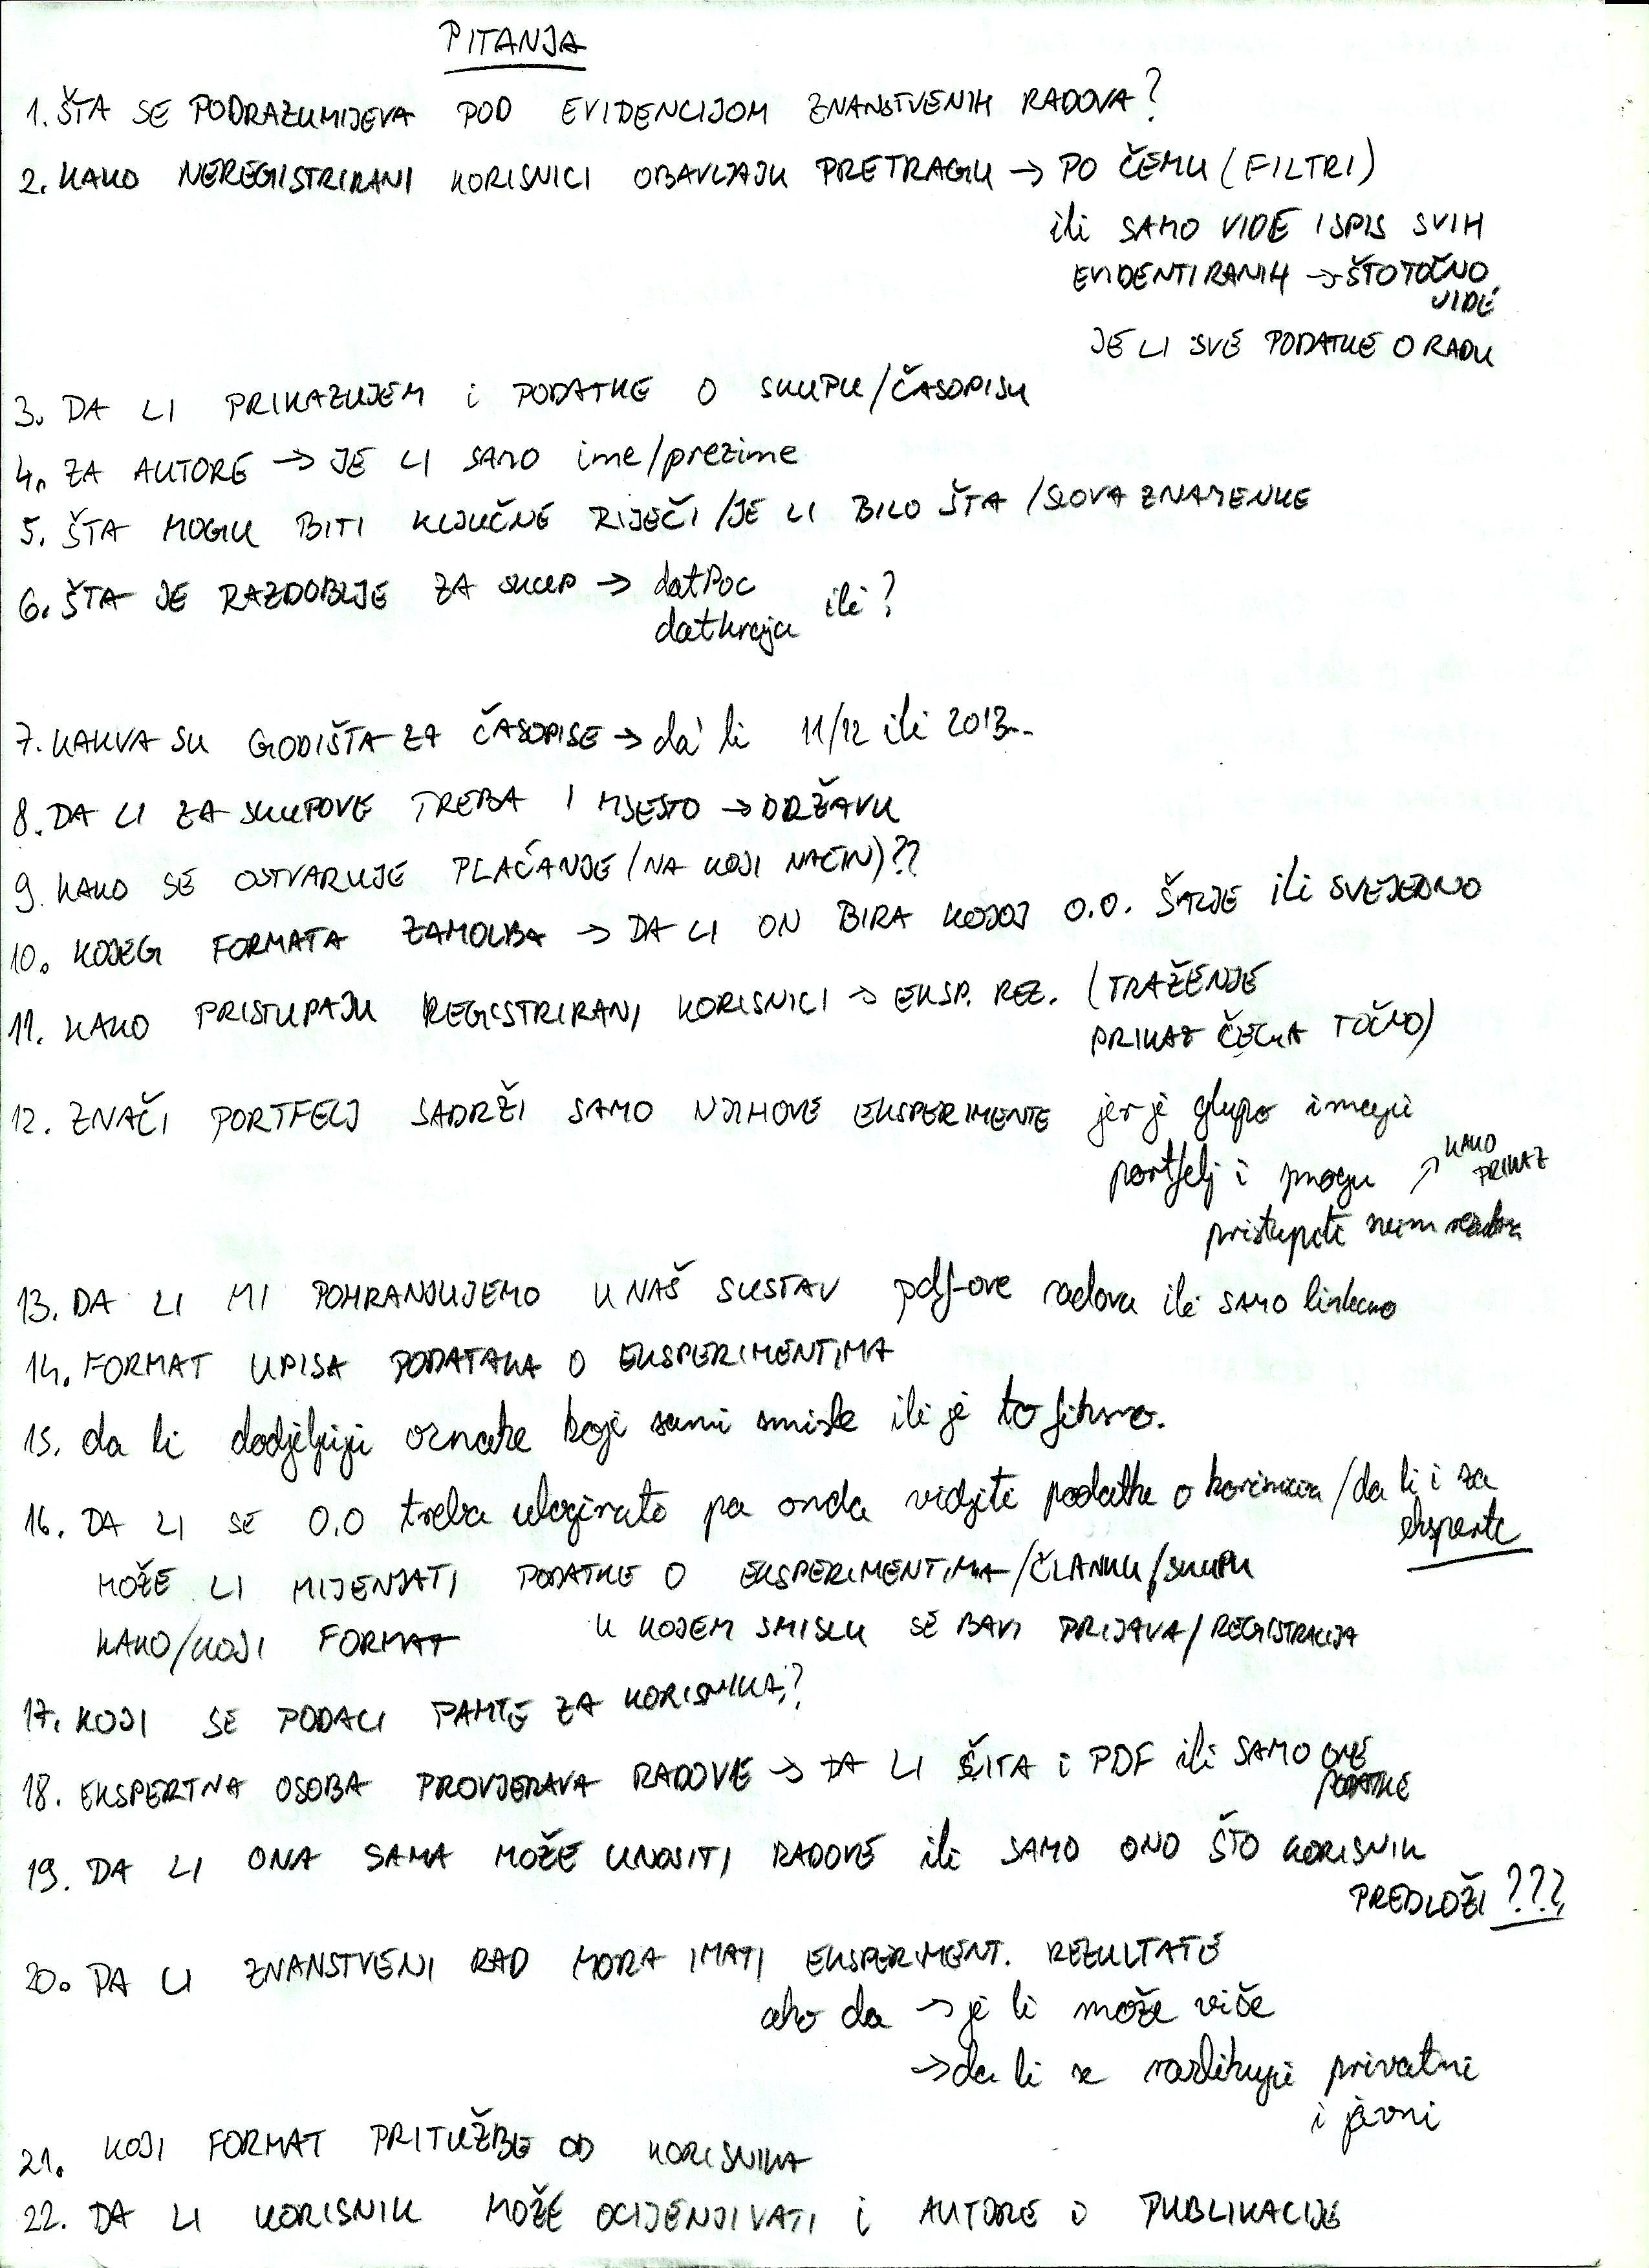 PITANJA
1. ŠTA SE PODRAZUMIJEVA POD EVIDENCIJOM ZNANSTVENIH RADOVA?
2. KAKO NEREGISTRIRANI KORISNICI OBAVLJAJU PRETRAGU → PO ČEMU (FILTRI)
ili SAMO VIDE ISPIS SVIH
EVIDENTIRANIH → ŠTO TOČNO
VIDE
JE LI SVE PODATKE O RADU
3. DA LI PRIKAZUJEM i PODATKE O SKUPU/ČASOPISU
4. ZA AUTORE → JE LI SAMO ime/prezime
5. ŠTA MOGU BITI KLJUČNE RIJEČI /JE LI BILO ŠTA /SLOVA ZNAMENKE
6. ŠTA JE RAZDOBLJE ZA SKUP → datPoc ili?
datkraja
7. KAKVA SU GODIŠTA ZA ČASOPISE → da li 11/12 ili 2013...
8. DA LI ZA SKUPOVE TREBA I MJESTO → DRŽAVU
9. KAKO SE OSTVARUJE PLAČANJE (NA KOJI NAČIN)??
10. KOJEG FORMATA ZAMOLBA → DA LI ON BIRA KOJOJ O.O. ŠALJE ili SVEJEDNO
11. KAKO PRISTUPAJU REGISTRIRANI KORISNICI → EKSP. REZ. (TRAŽENJE
PRIKAZ ČEGA TOČNO)
12. ZNAČI PORTFELJ SADRŽI SAMO NJIHOVE EKSPERIMENTE jer je glupo imaju
portfelj i mogu ↗ KAKO
PRIKAZ
pristupiti
13. DA LI MI POHRANJUJEMO U NAŠ SUSTAV pdf-ove radova ili SAMO linkamo
14. FORMAT UPISA PODATAKA O EKSPERIMENTIMA
15. da li dodjeljuju oznake koje sami smisle ili je to fiksno.
16. DA LI SE O.O treba ulogirati pa onda vidjeti podatke o korisnicima /da li i za
eksperte
MOŽE LI MIJENJATI PODATKE O EKSPERIMENTIMA/ČLANKU/SKUPU
KAKO/KOJI FORMAT U KOJEM SMISLU SE BAVI PRIJAVA/REGISTRACIJA
17. KOJI SE PODACI PAMTE ZA KORISNIKA?
18. EKSPERTNA OSOBA PROVJERAVA RADOVE → DA LI ČITA i PDF ili SAMO ONE
PODATKE
19. DA LI ONA SAMA MOŽE UNOSITI RADOVE ili SAMO ONO ŠTO KORISNIK
PREDLOŽI ???
20. DA LI ZNANSTVENI RAD MORA IMATI EKSPERIMENT. REZULTATE
ako da → je li može više
→ da li se razlikuju privatni
i javni
21. KOJI FORMAT PRITUŽBE OD KORISNIKA
22. DA LI KORISNIK MOŽE OCIJENJIVATI i AUTORE i PUBLIKACIJE